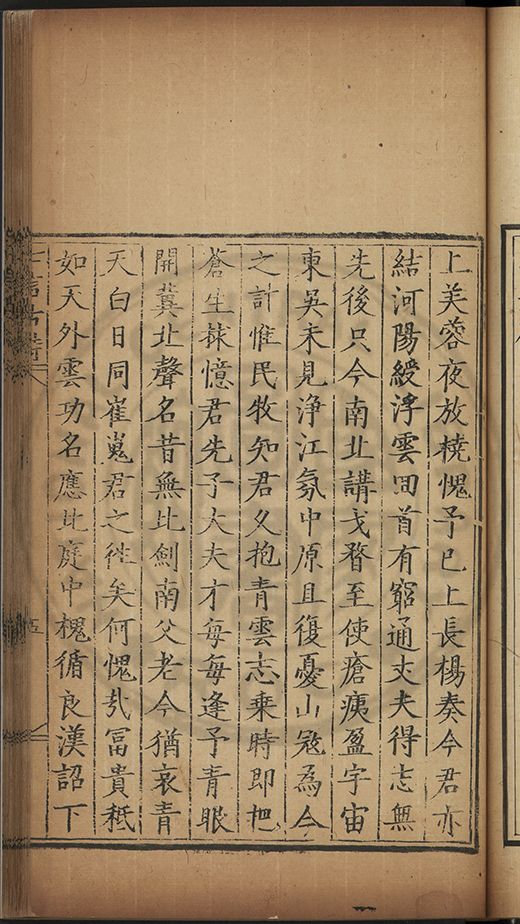 上芙蓉夜放橈愧予已上長楊奏今君亦
結河陽綬浮雲回首有窮通丈夫得志無
先後只今南北講戈矛至使瘡痍盈宇宙
東吳未見浄江氛中原且復憂山冦為今
之計惟民牧知君久抱青雲志乗時即把
蒼生蘇憶君先子大夫才每每逢予青眼
開冀北聲名昔無比劍南父老今猶哀青
天白日同崔嵬君之徃矣何愧㢤冨貴秪
如天外雲功名應比庭中槐循良漢詔下
七言古詩
五